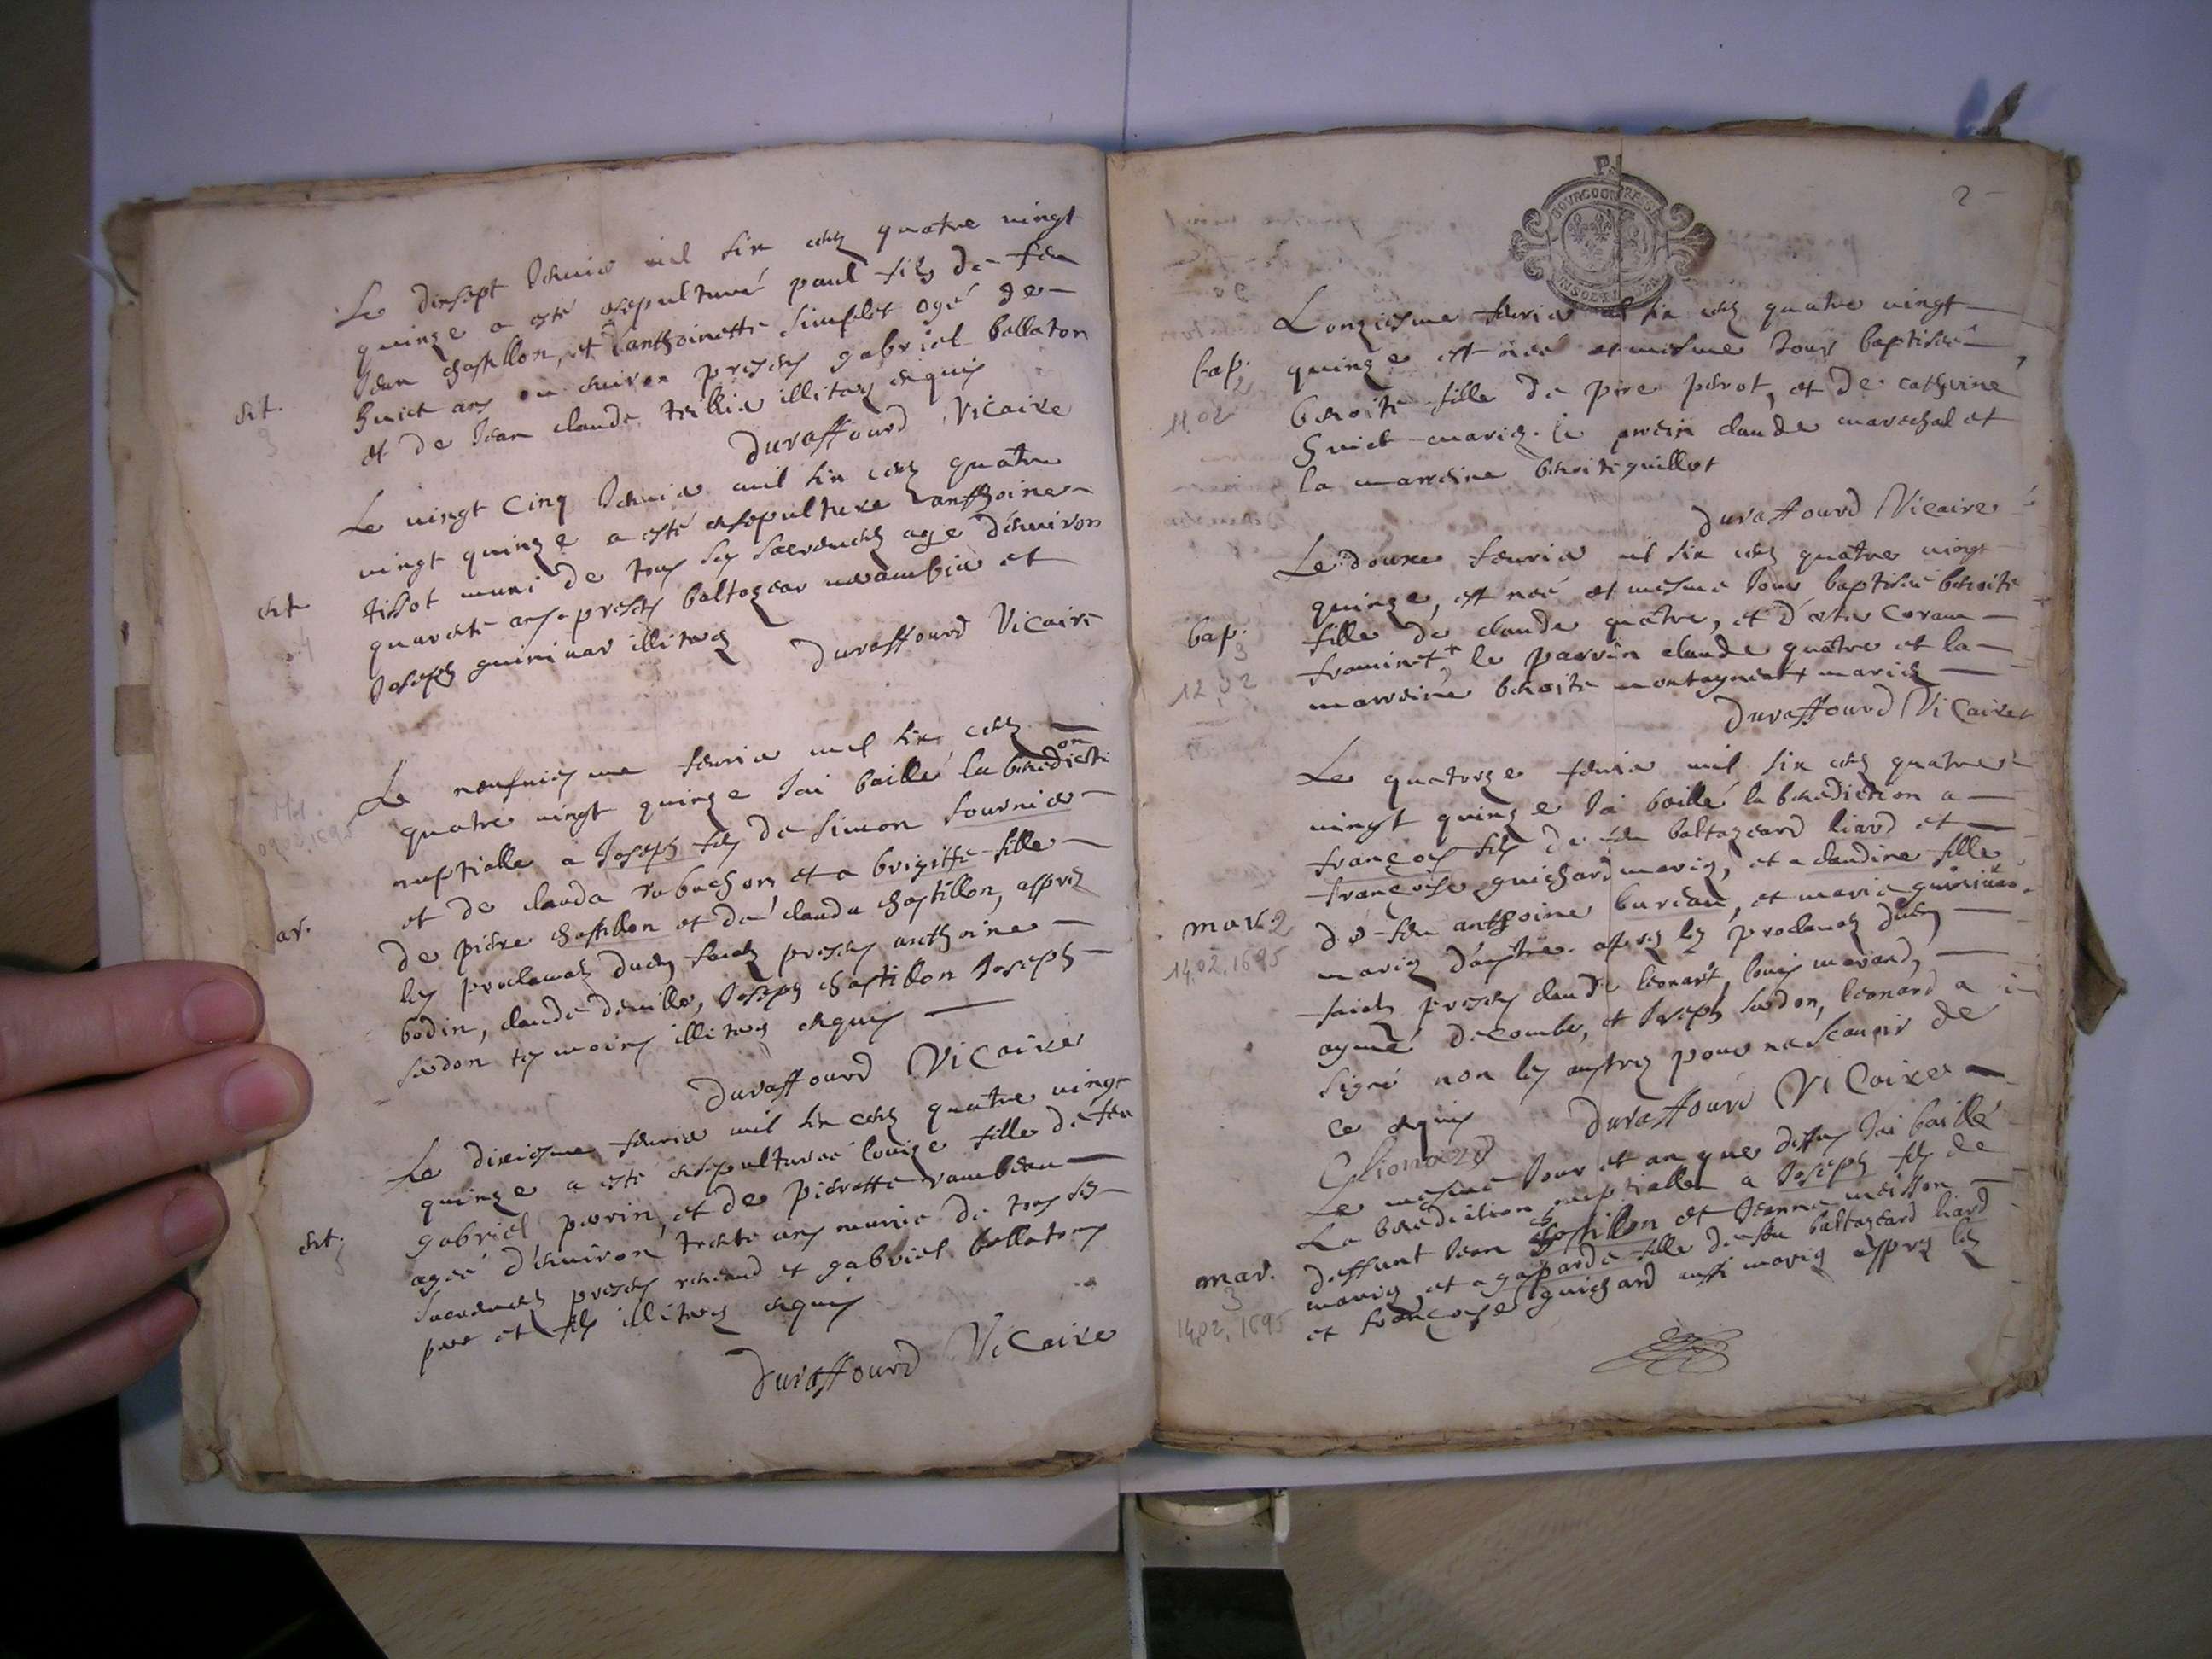 Le dixsept Jenvie mil six cens quatre vingt
quinze a esté ensepulturé paul fils de feu
Jean chastillon, et d'anthoinette simplet agé de
huict ans ou environ presens gabriel ballaton
ent.
et de Jean claude illiteres enquis
Duraffourd Vicaire
Le vingt Cinq Jenvie mil six cens quatre
vingt quinze a esté ensepulture anthoine
ent
tissot muni de tous ses sacremens agé d'environ
quarente ans presens baltazar et
Joseph guinivar illiteres Duraffourd Vicaire
Le neufviesme fevrie mil six cens
quatre vingt quinze Jai baillé la benediction
nuptialle a Joseph fils de simon fournier
09,02,1695
et de clauda rabuchon et a brigitte fille
ar.
de pierre chastillon et de clauda chastillon, appres
les proclamas duem faicts presens anthoine
bodin, claude deville, Joseph chastillon Joseph
serdon tesmoins illiteres enquis
Duraffourd Vicaire
Le dixiesme fevrie mil six cens quatre vingt
quinze a esté ensepulturée louize fille de feu
gabriel perrin, et de pierrette rambeau
ent.
agée d'environ trente ans munie de tous ses
sacremens presens et gabriel ballatons
pere et fils illiteres enquis
Duraffourd Vicaire
2
BOURGOGNE
L'onziesme fevrie mil six cens quatre vingt
bap.
2
quinze est née et mesme Jour baptisée
11,02
benoite fille de pire perrot, et de catherine
huict mariez. le parrin claude mareschal et
la marreine benoite guillot
Duraffourd Vicaire
Le douxe fevrie mil six cens quatre vingt
quinze, est née et mesme Jour baptisée benoite
bap.
3
fille de claude quatre, et d'
12,02
le parrin claude quatre et la
marreine benoite montagneat + mariez
Duraffourd Vicaire
Le quatorze fevrie mil six cens quatre
vingt quinze Jai baillé la benediction a
françois fils de feu baltazard liard et
françoise guichard mariez, et a claudine fille
mar. 2
de feu anthoine bureau, et marie guinivar
14,02,1695
mariez d'austre. apres les proclamas duem
faicts presens claude leonard, louis morand,
aymé decombe, et Joseph serdon, leonard a
signé non les austres pour ne scavoir de
ce enquis Duraffourd Vicaire
C lionard
Le mesme Jour et an que dessus Jai baillé
La benediction nuptialle a Joseph fils de
deffunt Jean chastillon et Jeanne
mar.
3
mariez et a gaparde fille de feu baltazard liard
14,02,1695
et françoise guichard aussi mariez appres les